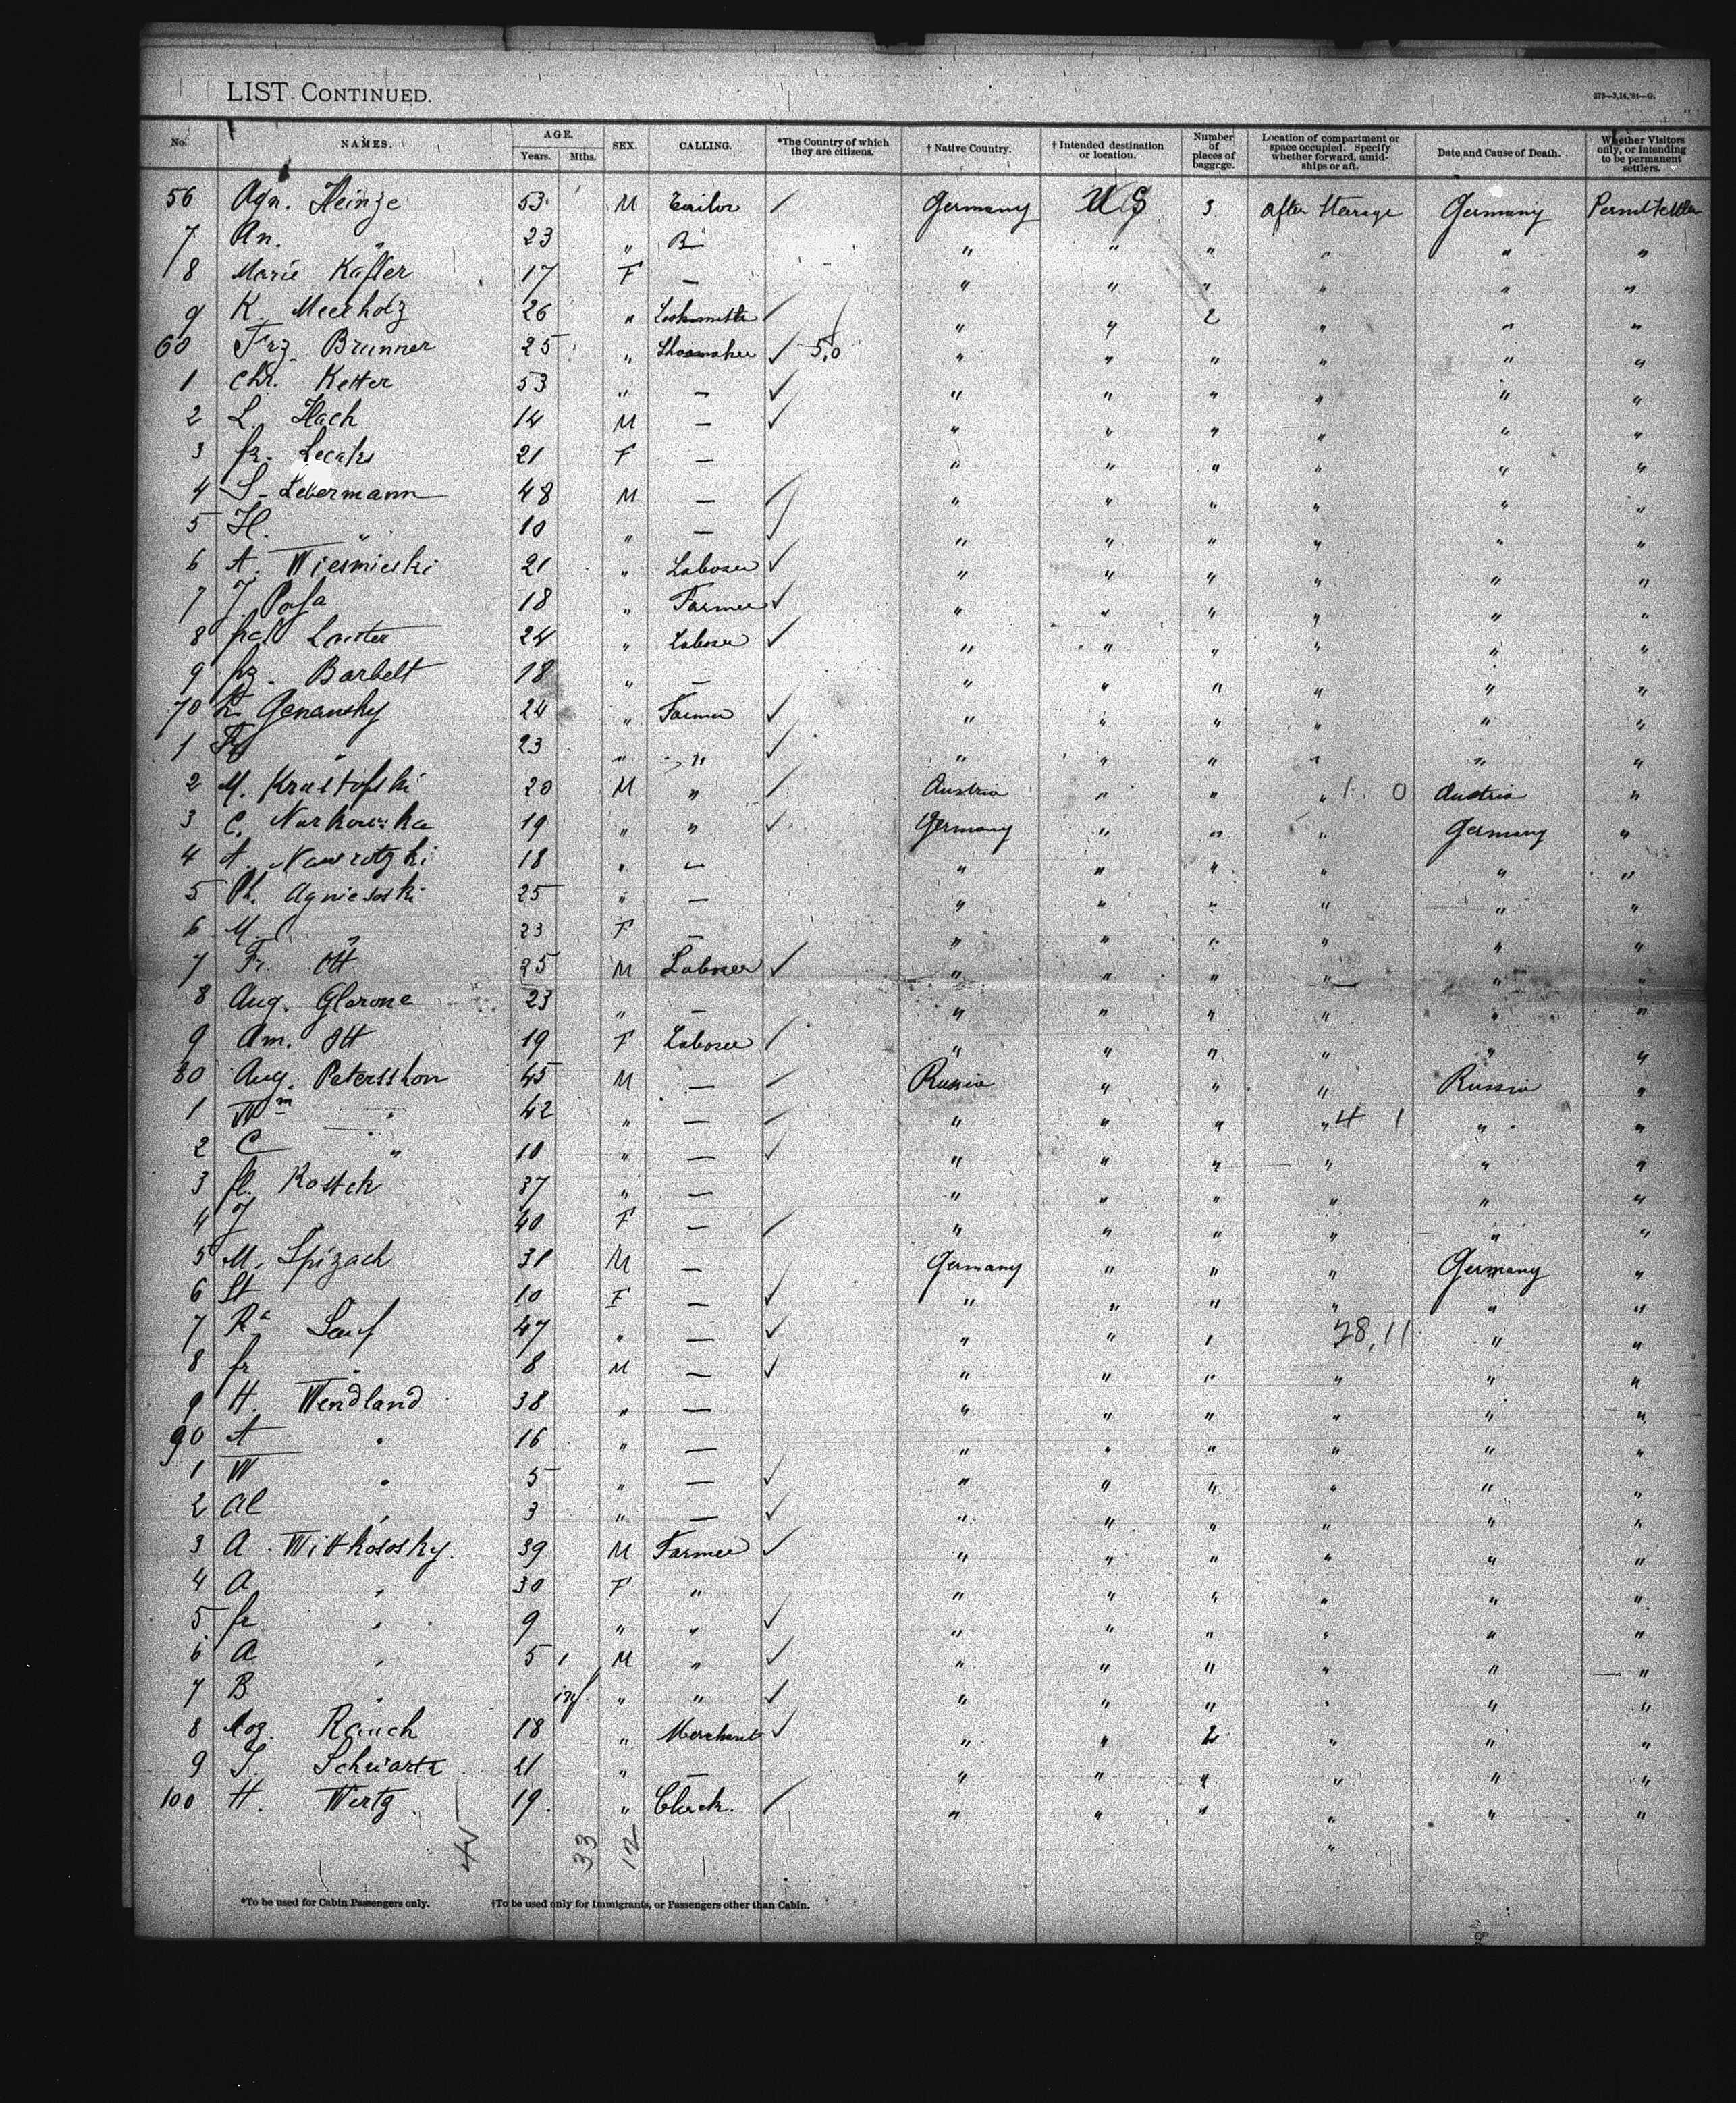 LIST CONTINUED.
No. NAMES. AGE. Years. Mths. SEX. CALLING. *The Country of which they are citizens. † Native Country. † Intended destination or location. Number of pieces of baggage. Location of compartment or space occupied. Specify whether forward, amidships or aft. Date and Cause of Death. Whether Visitors only, or intending to be permanent settlers.
56 Agn. Heinze 53 M Tailor / Germany US 3 after Sterage Germany
7 An. " 23 " " " " " " "
8 Marie Kafler 17 F — " " " " " "
9 K. Meerholz 26 " / " " 2 " " "
60 Frz. Brunner 25 " ✓ 5,0 " " " " " "
1 Chr. Ketter 53 " — ✓ " " " " " "
2 L. Hach 14 M — ✓ " " " " " "
3 fr. 21 F — " " " " " "
4 S. Lebermann 48 M — / " " " " " "
5 H. " 10 " — ✓ " " " " " "
6 A. 21 " Laborer ✓ " " " " " "
7 J. 18 " Farmer ✓ " " " " " "
8 24 " Laborer ✓ " " " " " "
9 frz. Barbelt 18 " — " " " " " "
70 Genansky 24 " Farmer ✓ " " " " " "
1 " 23 " " ✓ " " " " " "
2 M. Krustofski 20 M " / Austria " " " 1 0 Austria "
3 C. 19 " " ✓ Germany " " " Germany "
4 A. Nawrotzki 18 " — " " " " " "
5 Ph. 25 " — " " " " " "
6 M. " 23 F — " " " " " "
7 Fr. Ott 25 M Laborer ✓ " " " " " "
8 Aug. Glorone 23 " — " " " " " "
9 Am. Ott 19 F Laborer / " " " " " "
80 Aug. Petersshon 45 M — / Russia " " " Russia "
1 Wm " 42 " — / " " " " 4 1 " "
2 C " 10 " — ✓ " " " " " "
3 fl. Kostek 37 " — " " " " " "
4 J 40 F — / " " " " " "
5 M. Spizach 31 M — Germany " " " Germany "
6 St 10 F — ✓ " " " " " "
7 47 " — ✓ " " " 28,11 " "
8 fr " 8 M — ✓ " " " " " "
9 H. Wendland 38 " — " " " " " "
90 A " 16 " — " " " " " "
1 W " 5 " — ✓ " " " " " "
2 Al " 3 " — ✓ " " " " " "
3 A. Witkososky. 39 M Farmer ✓ " " " " " "
4 A " 30 F " " " " " " "
5 fr " 9 " " ✓ " " " " " "
6 A " 5 1 M " ✓ " " " " " "
7 B " inf. " " ✓ " " " " " "
8 Rauch 18 " Merchant ✓ " " 2 " " "
9 S. Schwartz 21 " — " " " " " "
100 H. Wertz 19. " Clerk. / " " " " " "
33 12 "
*To be used for Cabin Passengers only. †To be used only for Immigrants, or Passengers other than Cabin.